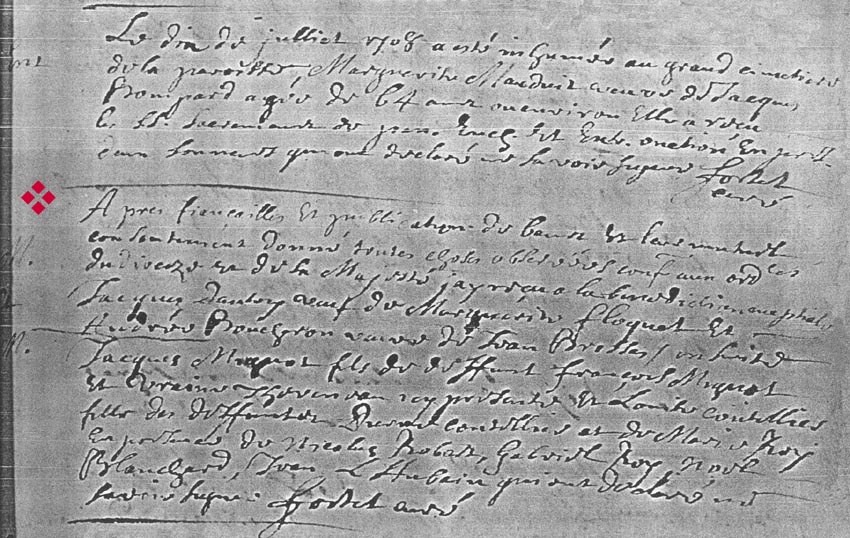 Le dix de juillet 1708 a esté inhumée au grand cimetiere
de la paroisse, Marguerite Mauduit veuve de Jacques
Rompard agée de 64 ans ou environ Elle a receu
les Sts. Sacremens de peni. Euch. et Ext. onction En pres.
qui ont declaré ne savoir signer Fortet
curé
Apres fiancailles Et publication de bancs Et leur mutuel
consentement donné toutes choses observées conf. aux ordces
du dioceze et de sa Majesté jay receu a la benediction nuptiale
Jacques veuf de Marguerite Floquet Et
Andrée Rougeron veuve de Jean Brossas / en suite
Jacques Miquot fils de deffunt François Miquot
Et icy presente Et Louise Contellier
fille des deffuntes Pierre Contellier et de Marie Roy
En presence de Nicolas Robat, Gabriel Roy, Noel
Blanchard, Jean L'Hubain qui ont declaré ne
savoir signer Fortet curé